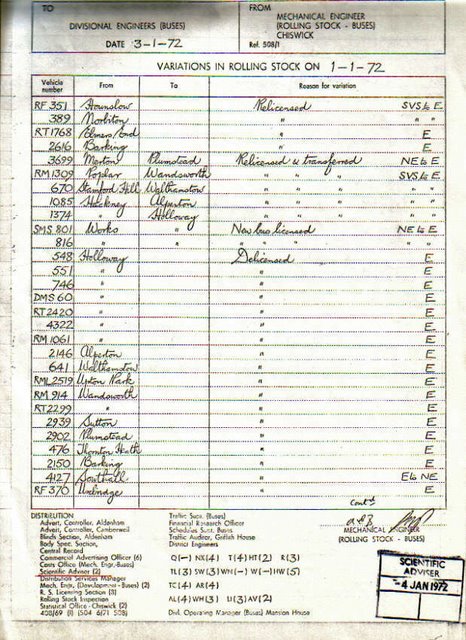 TO
DIVISIONAL ENGINEERS (BUSES)
DATE 3-1-72
FROM
MECHANICAL ENGINEER
(ROLLING STOCK - BUSES)
CHISWICK
Ref. 508/1
VARIATIONS IN ROLLING STOCK ON 1-1-72
Vehicle number From To Reason for variation
RF 351 Hounslow Relicensed SVS to E
389 Norbiton " " "
RT 1768 Elmers End " E
2616 Barking " E
3699 Merton Plumstead Relicensed & transferred NE to E
RM 1309 Poplar Wandsworth " " " SVS to E
670 Stamford Hill Walthamstow " " " " "
1085 Hackney Alperton " " " " "
1374 " Holloway " " " " "
SMS 801 Works " New bus licensed NE to E
816 " " " " " " "
548 Holloway Delicensed E
551 " " E
746 " " E
DMS 60 " " E
RT 2420 " " E
4322 " " E
RM 1061 " " E
2146 Alperton " E
641 Walthamstow " E
RML 2519 Upton Park " E
RM 914 Wandsworth " E
RT 2299 " " E
2939 Sutton " E
2902 Plumstead " E
476 Thornton Heath " E
2150 Barking " E
4127 Southall " E to NE
RF 370 Uxbridge " E
Contd
DISTRIBUTION
Advert. Controller, Aldenham
Advert. Controller, Camberwell
Blinds Section, Aldenham
Body Spec. Section,
Central Record
Commercial Advertising Officer (6)
Cents Office (Mech. Engr. Buses)
Scientific Adviser (2)
Distribution Services Manager
Mech. Engr. (Development - Buses) (2)
R. S. Licensing Section (3)
Rolling Stock Inspection
Statistical Office - Chiswick (2)
408/69 (I) (504 6/71 508)
Traffic Supt. (Buses)
Financial Research Officer
Schedules Supt. Buses
Traffic Auditor, Griffith House
District Engineers
Q(-) NX(4) T(4) HT(2) R(3)
TL(3) SW(3) WN(-) W(-) HW(5)
TC(4) AR(4)
AL(4) WH(3) U(3) AV(2)
Divl. Operating Manager (Buses) Mansion House
MECHANICAL ENGINEER
(ROLLING STOCK - BUSES)
SCIENTIFIC
ADVISER
-4 JAN 1972